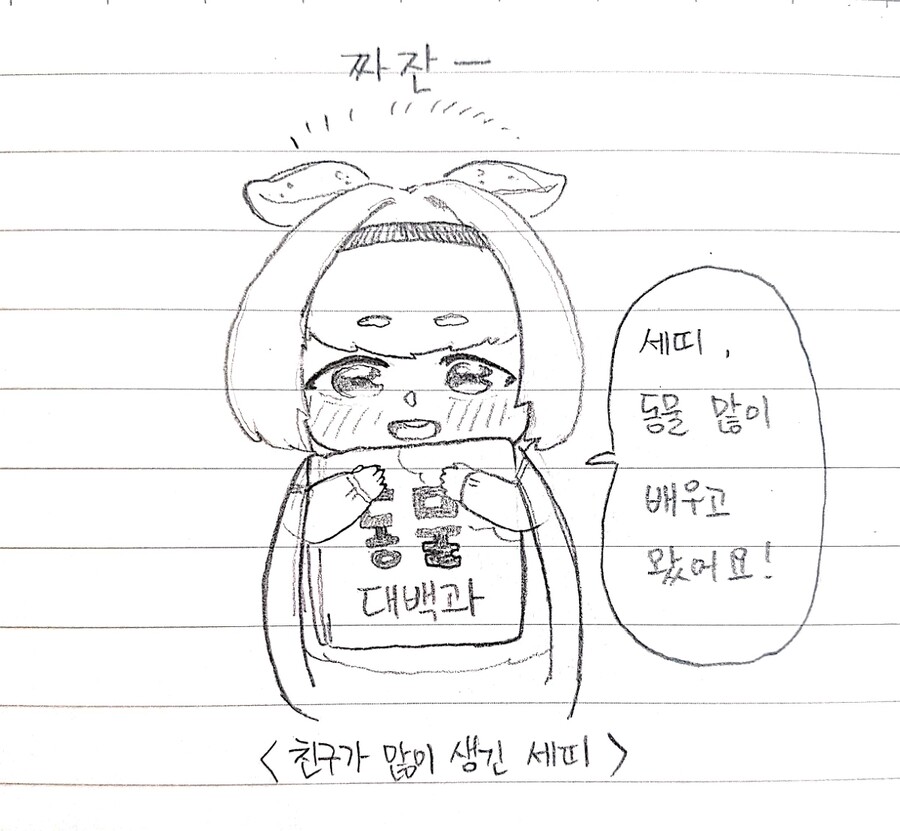 짜잔ㅡ
세띠,
동물 많이
배우고
왔어요!
동물
대백과
< 친구가 많이 생긴 세띠 >